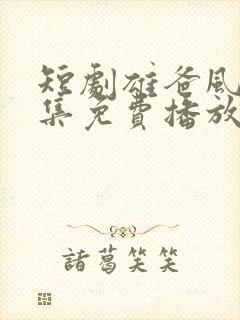 短劇雄爸風
集免費播放
諸葛笑笑